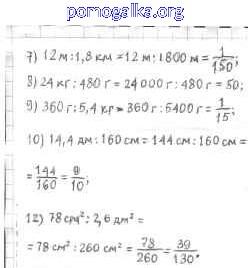 pomogalka.org
7) 12 м : 1,8 км = 12 м : 1800 м = 1/150;
8) 24 кг : 480 г = 24 000 г : 480 г = 50;
9) 360 г : 5,4 кг = 360 г : 5400 г = 1/15;
10) 14,4 дм : 160 см = 144 см : 160 см =
= 144/160 = 9/10;
12) 78 см² : 2,6 дм² =
= 78 см² : 260 см² = 78/260 = 39/130.